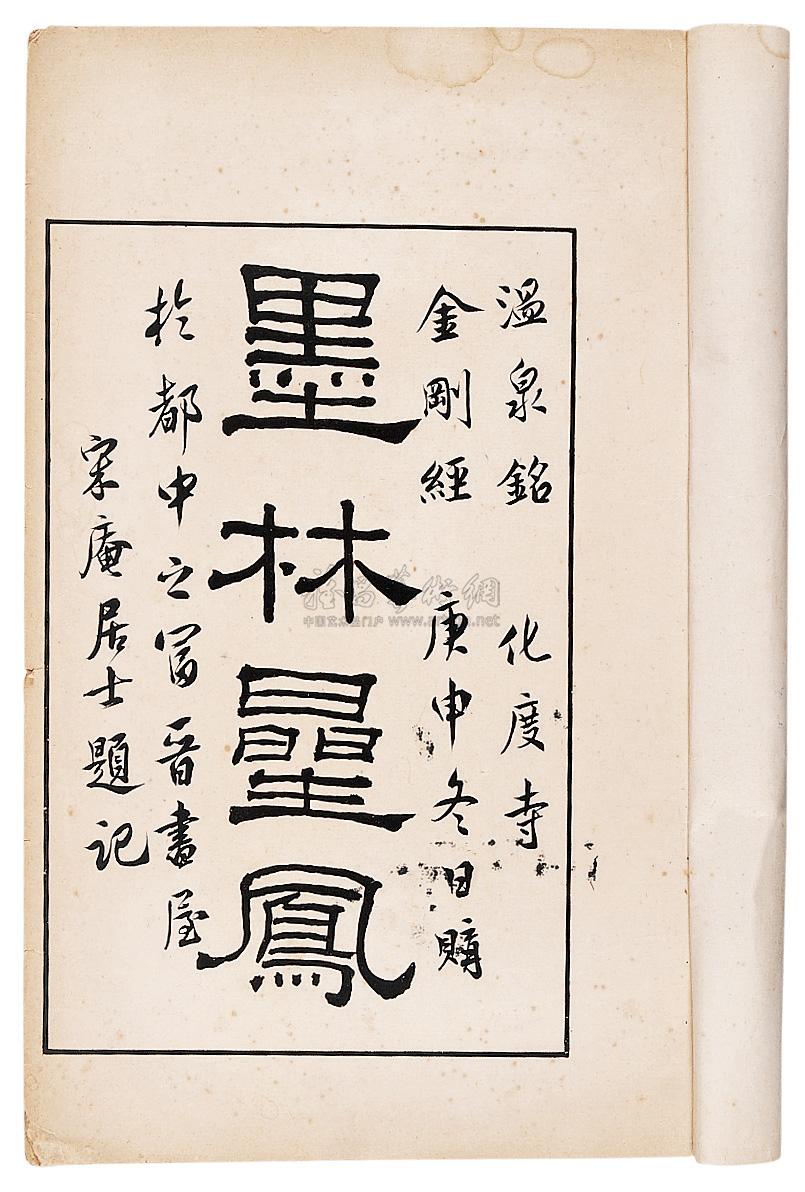 温泉銘 化度寺
金剛經 庚申冬日購
墨林曐鳳
於都中之冨晉書屋
庵居士題記
藝術網
中国艺术品门户 www.artron.net